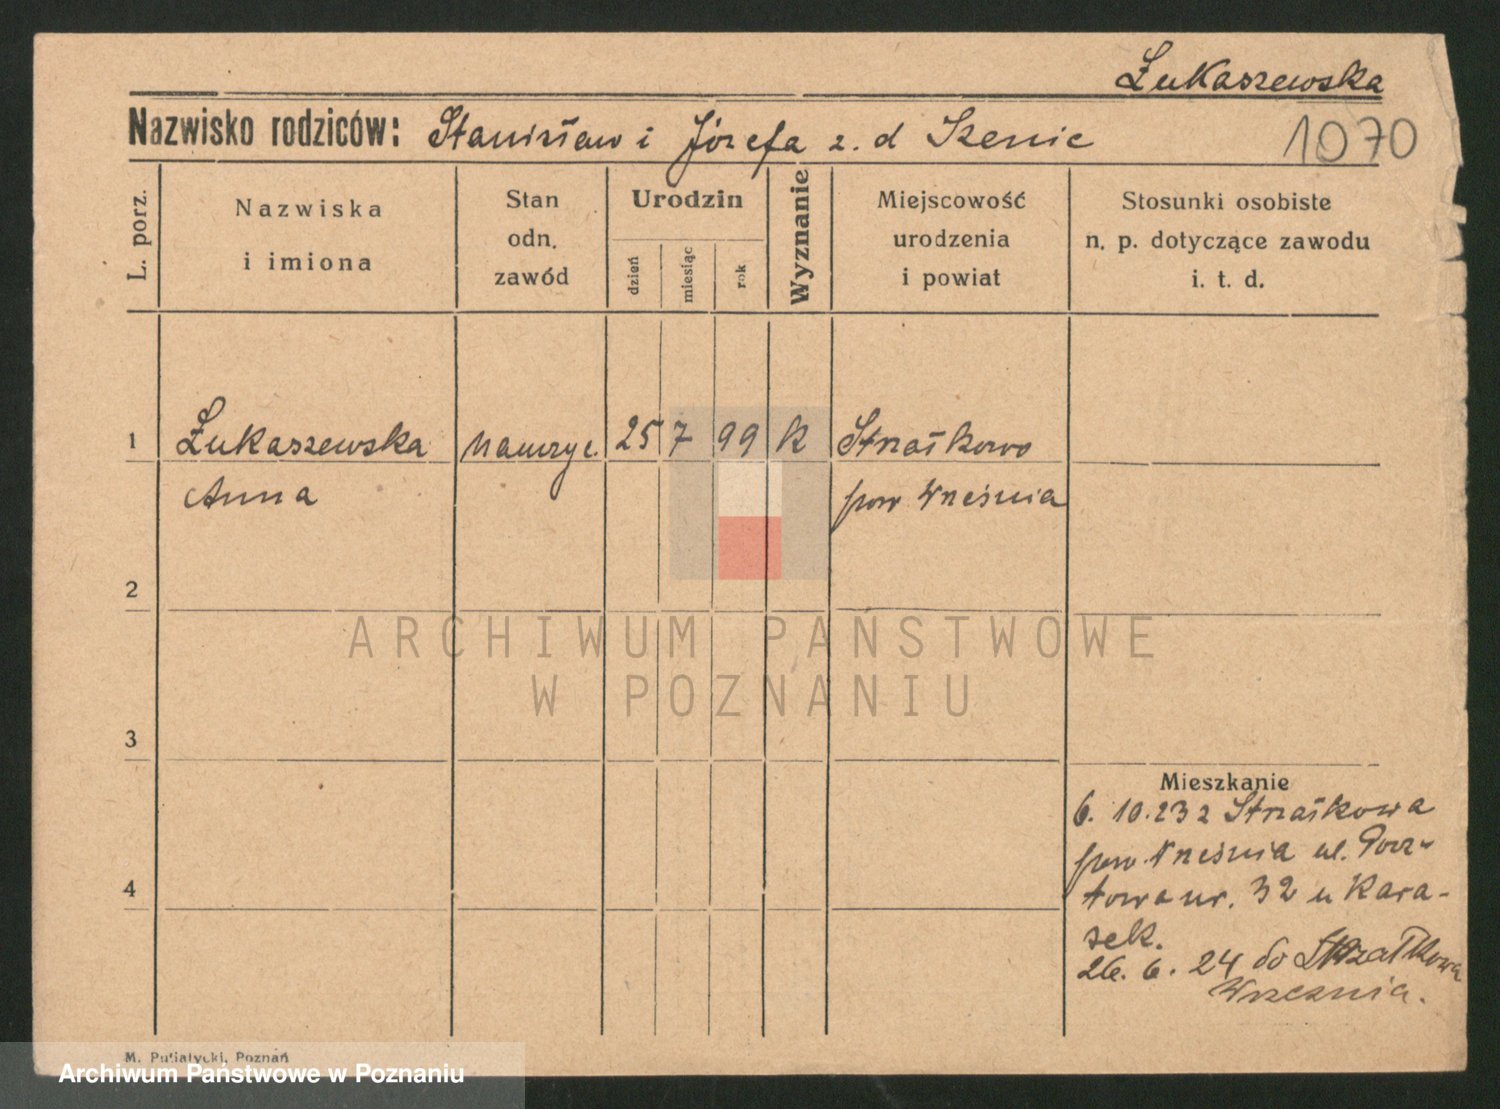 Łukaszewska
Nazwisko rodziców: Stanisław i Józefa z. d Szenic
1070
L. porz.
Nazwiska
i imiona
Stan
odn.
zawód
Urodzin
dzień
miesiąc
rok
Wyznanie
Miejscowość
urodzenia
i powiat
Stosunki osobiste
n. p. dotyczące zawodu
i. t. d.
1 Łukaszewska nauczyc. 25 7 99 k Strzałkowo
Anna pow Września
2
3
4
Mieszkanie
6. 10.23 z Strzałkowa
pow Września ul. Porz-
towa nr. 32 u Kara-
sek.
26. 6. 24 do Strzałkowa
Wrzesnia.
M. Putiatycki, Poznań
ARCHIWUM PAŃSTWOWE
W POZNANIU
Archiwum Państwowe w Poznaniu